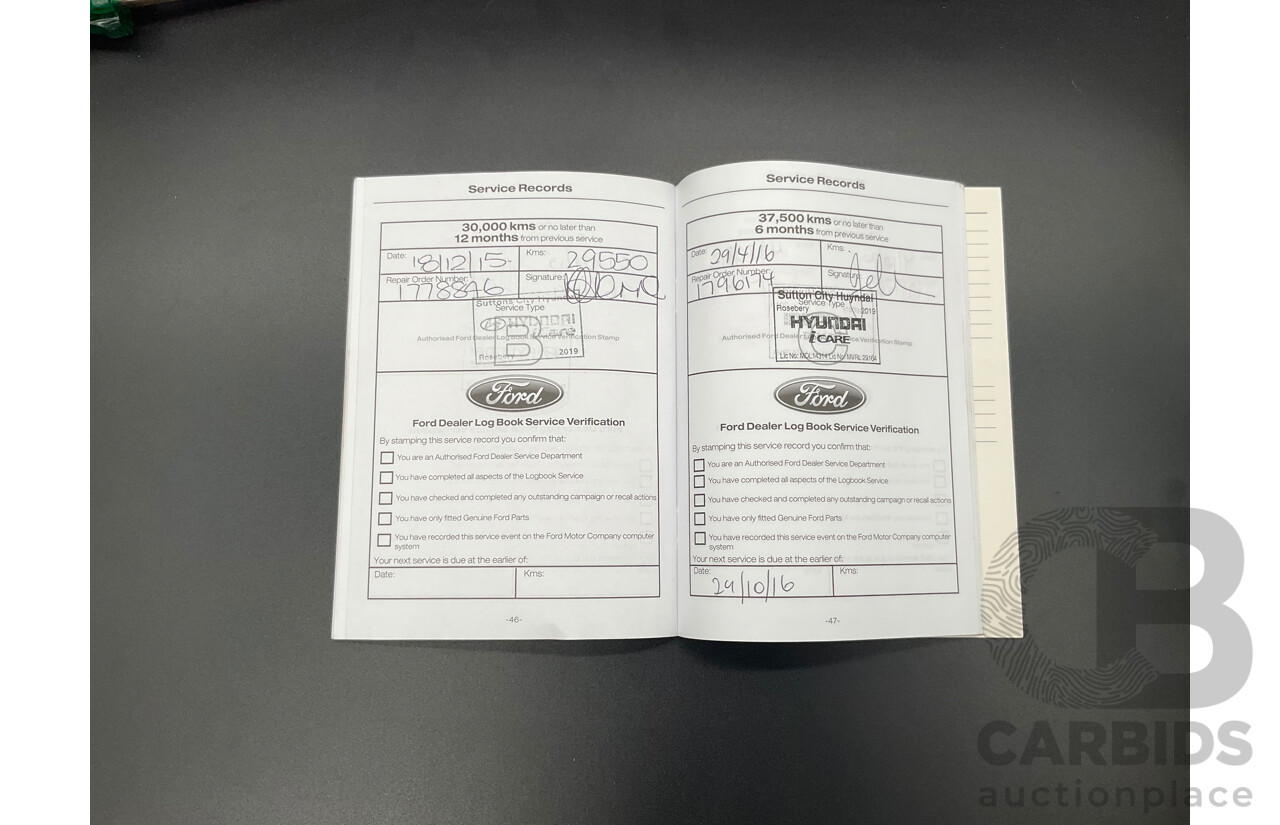 Service Records
30,000 kms or no later than
12 months from previous service
Date: 18/12/15
Kms: 29550
Repair Order Number: 1778846
Signature:
Suttons City Hyundai
Service Type
HYUNDAI
B
iCare
Authorised Ford Dealer Log Book Service Verification Stamp
Rosebery 2019
Ford
Ford Dealer Log Book Service Verification
By stamping this service record you confirm that:
You are an Authorised Ford Dealer Service Department
You have completed all aspects of the Logbook Service
You have checked and completed any outstanding campaign or recall actions
You have only fitted Genuine Ford Parts
You have recorded this service event on the Ford Motor Company computer
system
Your next service is due at the earlier of:
Date:
Kms:
-46-
Service Records
37,500 kms or no later than
6 months from previous service
Date: 29/4/16
Kms:
Repair Order Number: 1796174
Signature:
Sutton City Huyndai
Service Type
Rosebery 2019
HYUNDAI
C
Authorised Ford Dealer Service Verification Stamp
iCARE
Ford
Ford Dealer Log Book Service Verification
By stamping this service record you confirm that:
You are an Authorised Ford Dealer Service Department
You have completed all aspects of the Logbook Service
You have checked and completed any outstanding campaign or recall actions
You have only fitted Genuine Ford Parts
You have recorded this service event on the Ford Motor Company computer
system
Your next service is due at the earlier of:
Date: 29/10/16
Kms:
-47-
CB
CARBIDS
auctionplace